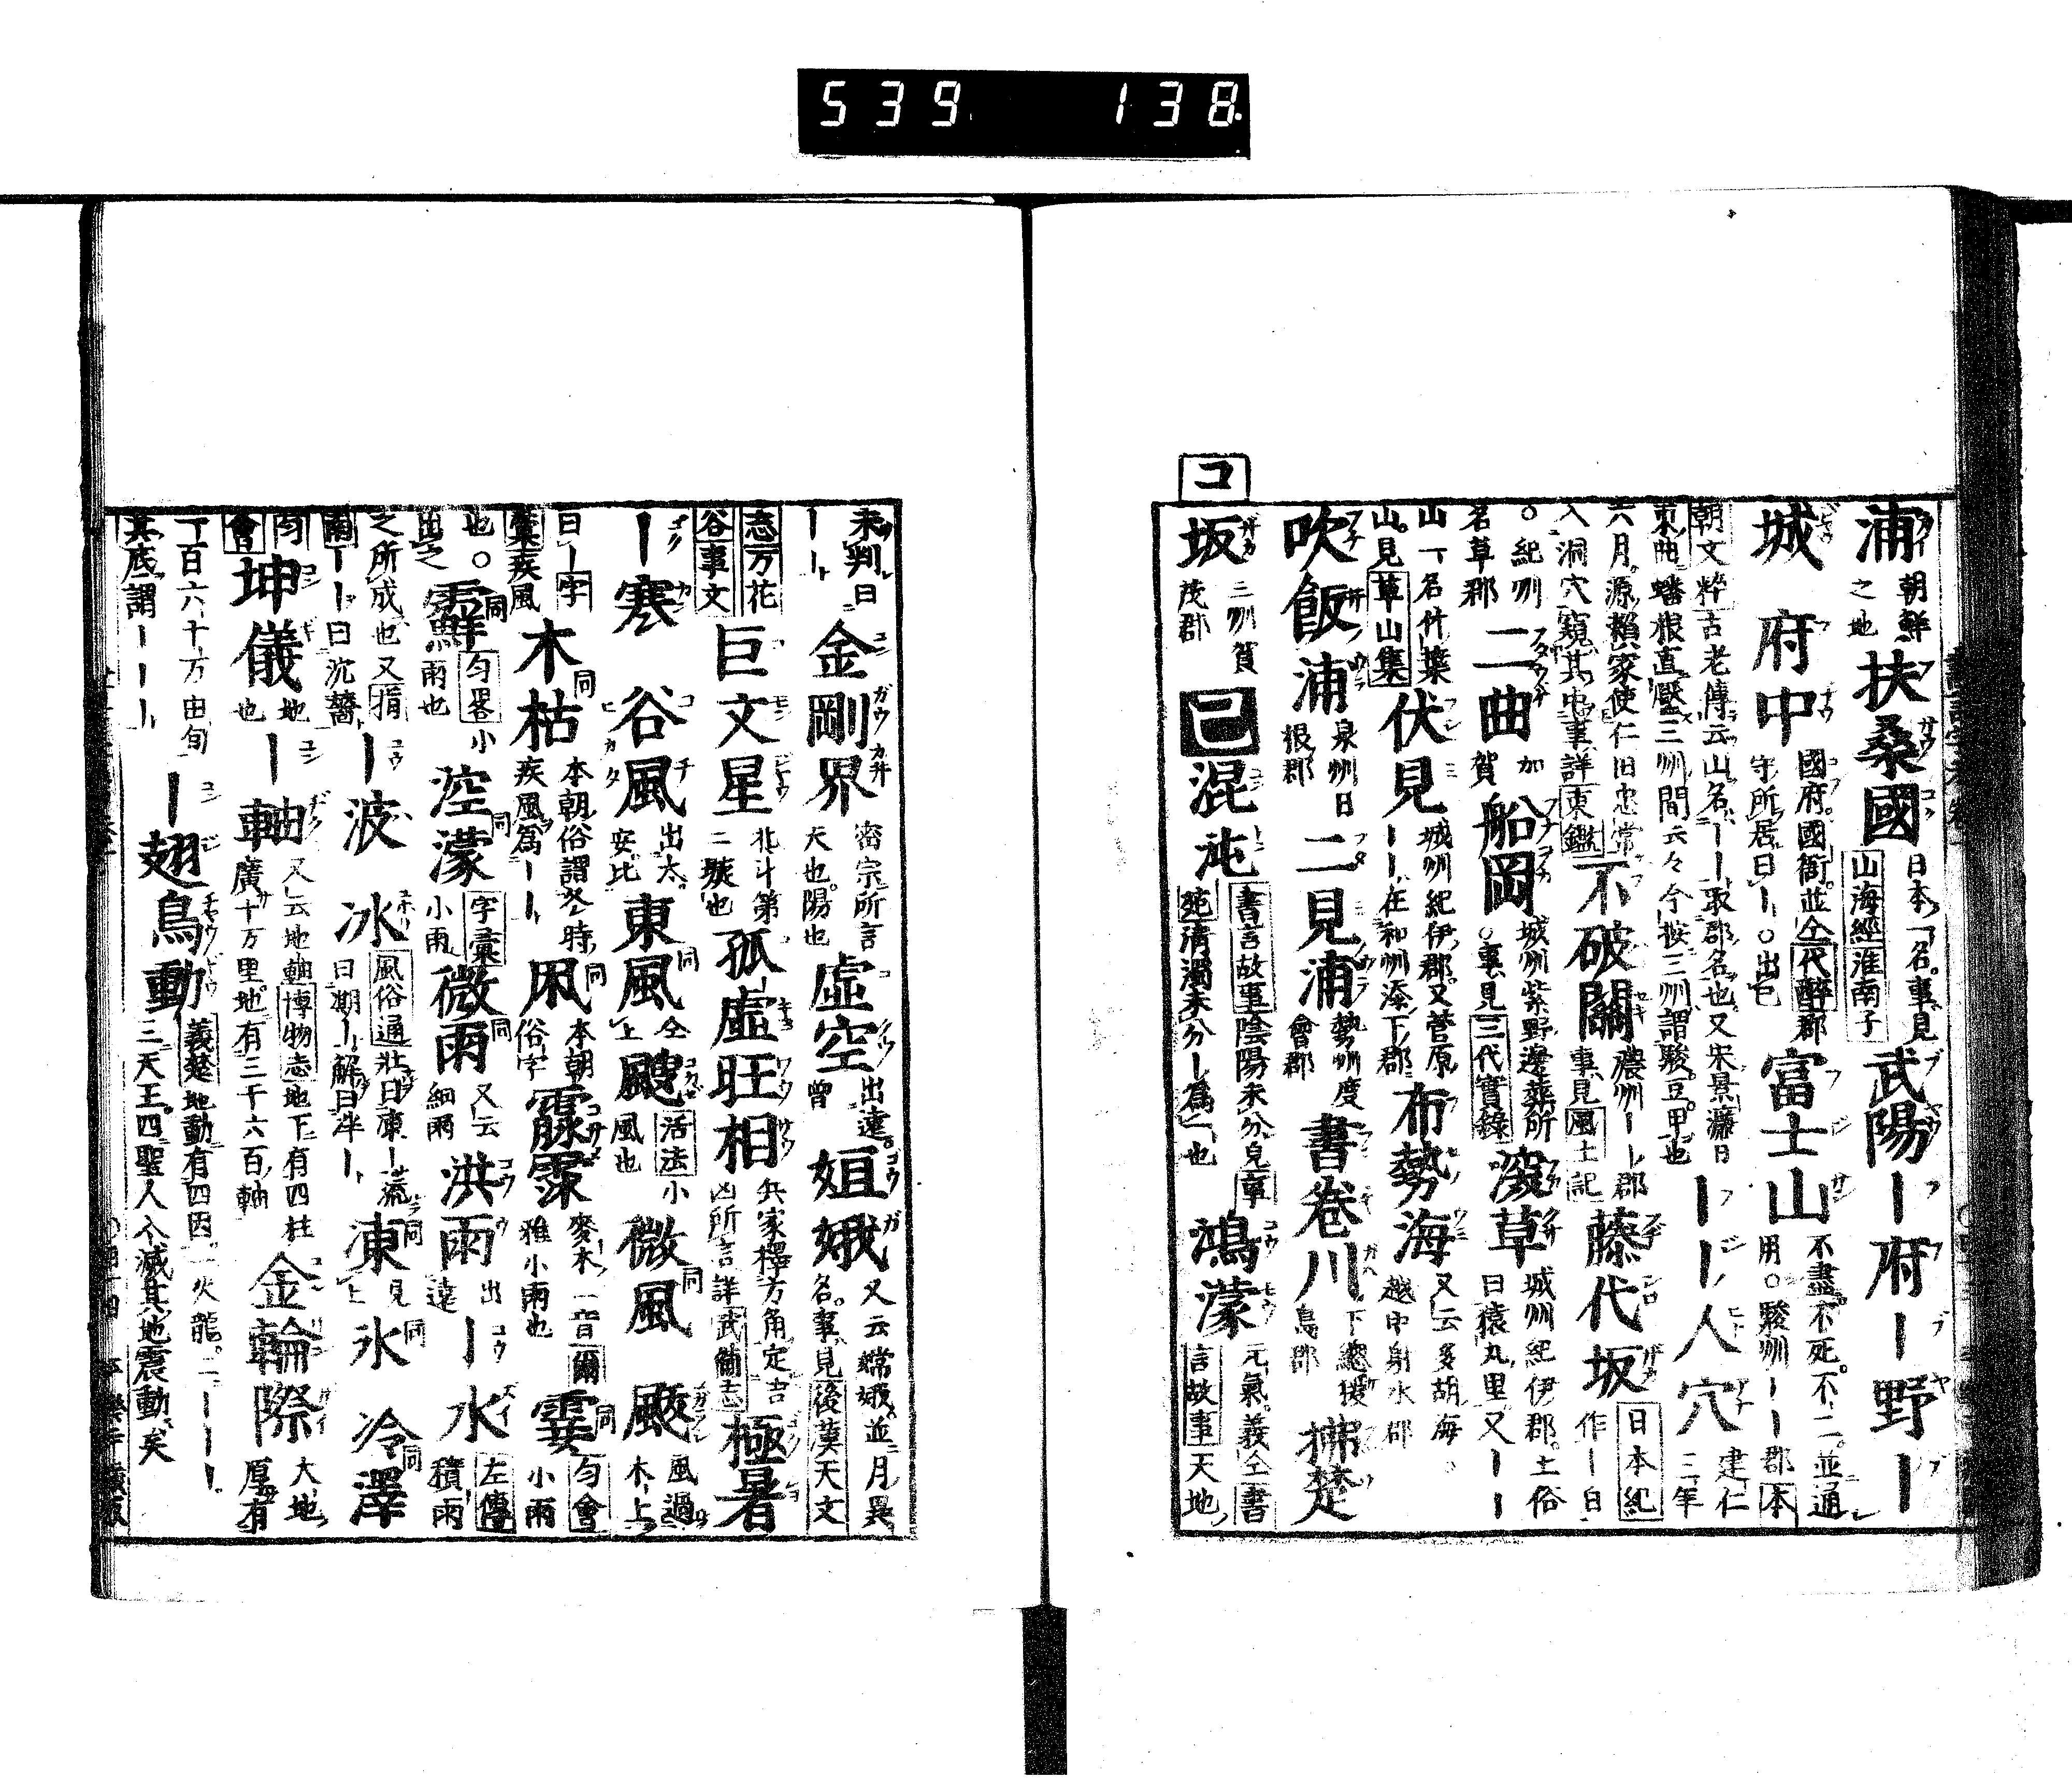 539 138
浦 朝鮮之地 扶桑國 日本一名事見山海經淮南子 武陽 ー府 ー野ー
城 府中 國府國衙並仝 守所居曰ー 富士山 不盡不死不二並通用○駿州ーー郡本
朝文粹古老傳云山名ーー取郡名也又宋景濂日東曲蟠根直壓三州間云々今按三州謂駿豆甲也 ーー人穴 建仁三年
六月源賴家使仁田忠常入洞穴窺其中事詳東鑑 不破關 濃州ーー郡事見風土記 藤代坂 日本紀作ー白
○紀州名草郡 二曲 加賀 船岡 城州紫野邊葬所○事見三代實錄 深草 城州紀伊郡土俗曰猿丸里又ーー
山一名竹葉山見草山集 伏見 城州紀伊郡又菅原ーー在和州添下郡 布勢海 又云多胡海越中射水郡
吹飯浦 泉州日根郡 二見浦 勢州度會郡 書卷川 下總 拂楚
コ
坂 三州賀茂郡 己 混沌 書言故事陰陽未分見章 純清濁未分ー為一也 鴻濛 元氣義仝書言故事天地
未判曰ーー 金剛界 密宗所言天也陽也 虛空 出遠曾 姮娥 又云嫦娥並月異名事見後漢天文
志万花谷事文 巨文星 北斗第二㷠也 孤虛旺相 兵家擇方角定吉凶所言詳武備志 極暑
ー寒 谷風 出太安比 東風 仝上 颼 活法小風也 微風 同 颷 風過木上
曰ー字彙疾風 木枯 同 本朝俗謂冬時疾風為ーー 凩 同 本朝俗字 霢霂 麥木二音爾雅小雨也 霎 同 勻會小雨
也○出之 霹 同 勻畧小雨也 涳濛 同 字彙小雨 微雨 同 又云細雨 洪雨 出遠 ー水 左傳積雨
之所成也又指南ーー曰沉醬 ー波 冰 風俗通壯曰凍ー流曰期ー解曰泮ー 凍 同 見上 氷 同 冷澤 同
勻會 坤儀 地也 ー軸 又云地軸博物志地下有四柱廣十万里地有三千六百軸 金輪際 大地厚有
一百六十万由旬其底謂ーーー ー翅鳥動 義楚地動有四因一火龍二ーーー三天王四聖人今滅其地震動矣